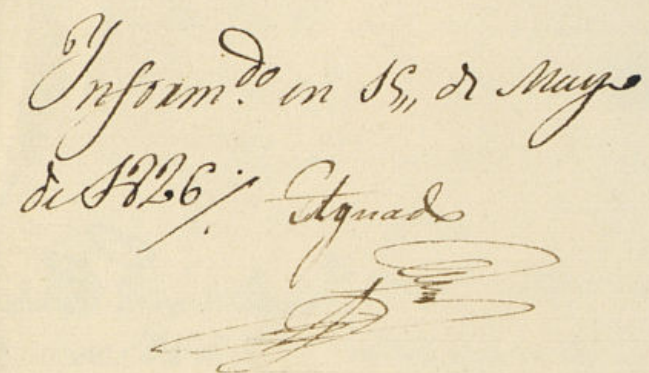 Inform.do en 15,, de Mayo
de 1826./. Aguado